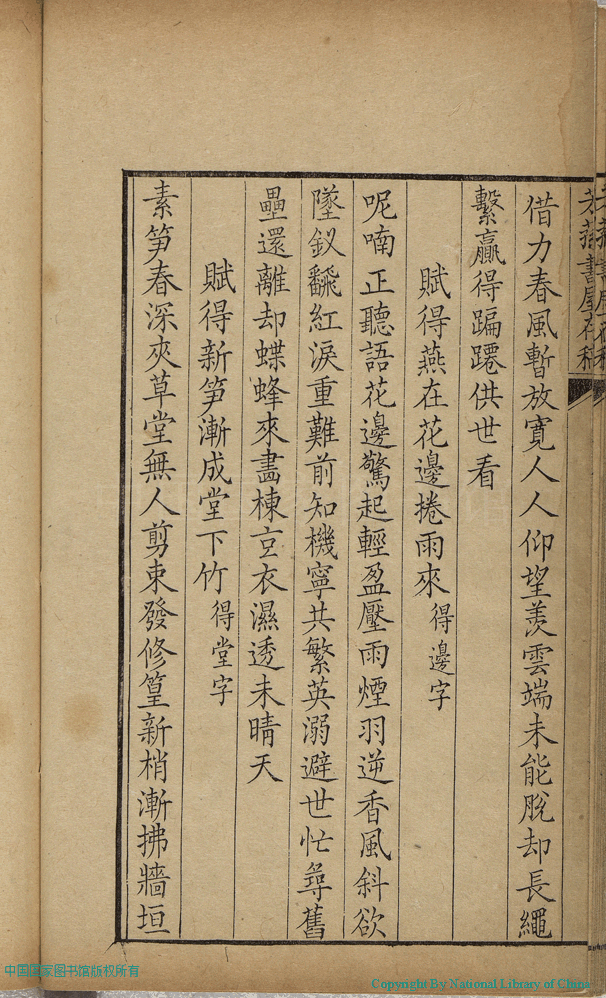 借力春風暫放寬人人仰望羨雲端未能脫却長繩
繫贏得蹁躚供世看
賦得燕在花邊捲雨來 得邊字
呢喃正聽語花邊驚起輕盈壓雨煙羽逆香風斜欲
墜釵飜紅淚重難前知機寧共繁英溺避世忙尋舊
壘還離却蝶蜂來畵棟立衣濕透未晴天
賦得新笋漸成堂下竹 得堂字
素笋春深夾草堂無人剪束發修篁新梢漸拂牆垣
中国国家图书馆版权所有
Copyright By National Library of China